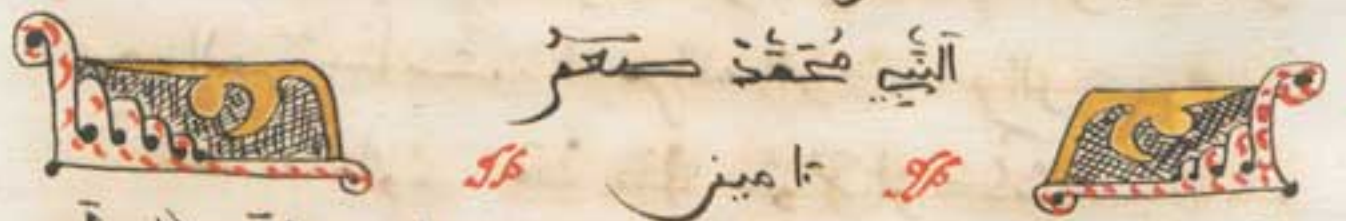 اَلنَّبِي مُحَمَّدْ صلعم
ءامين